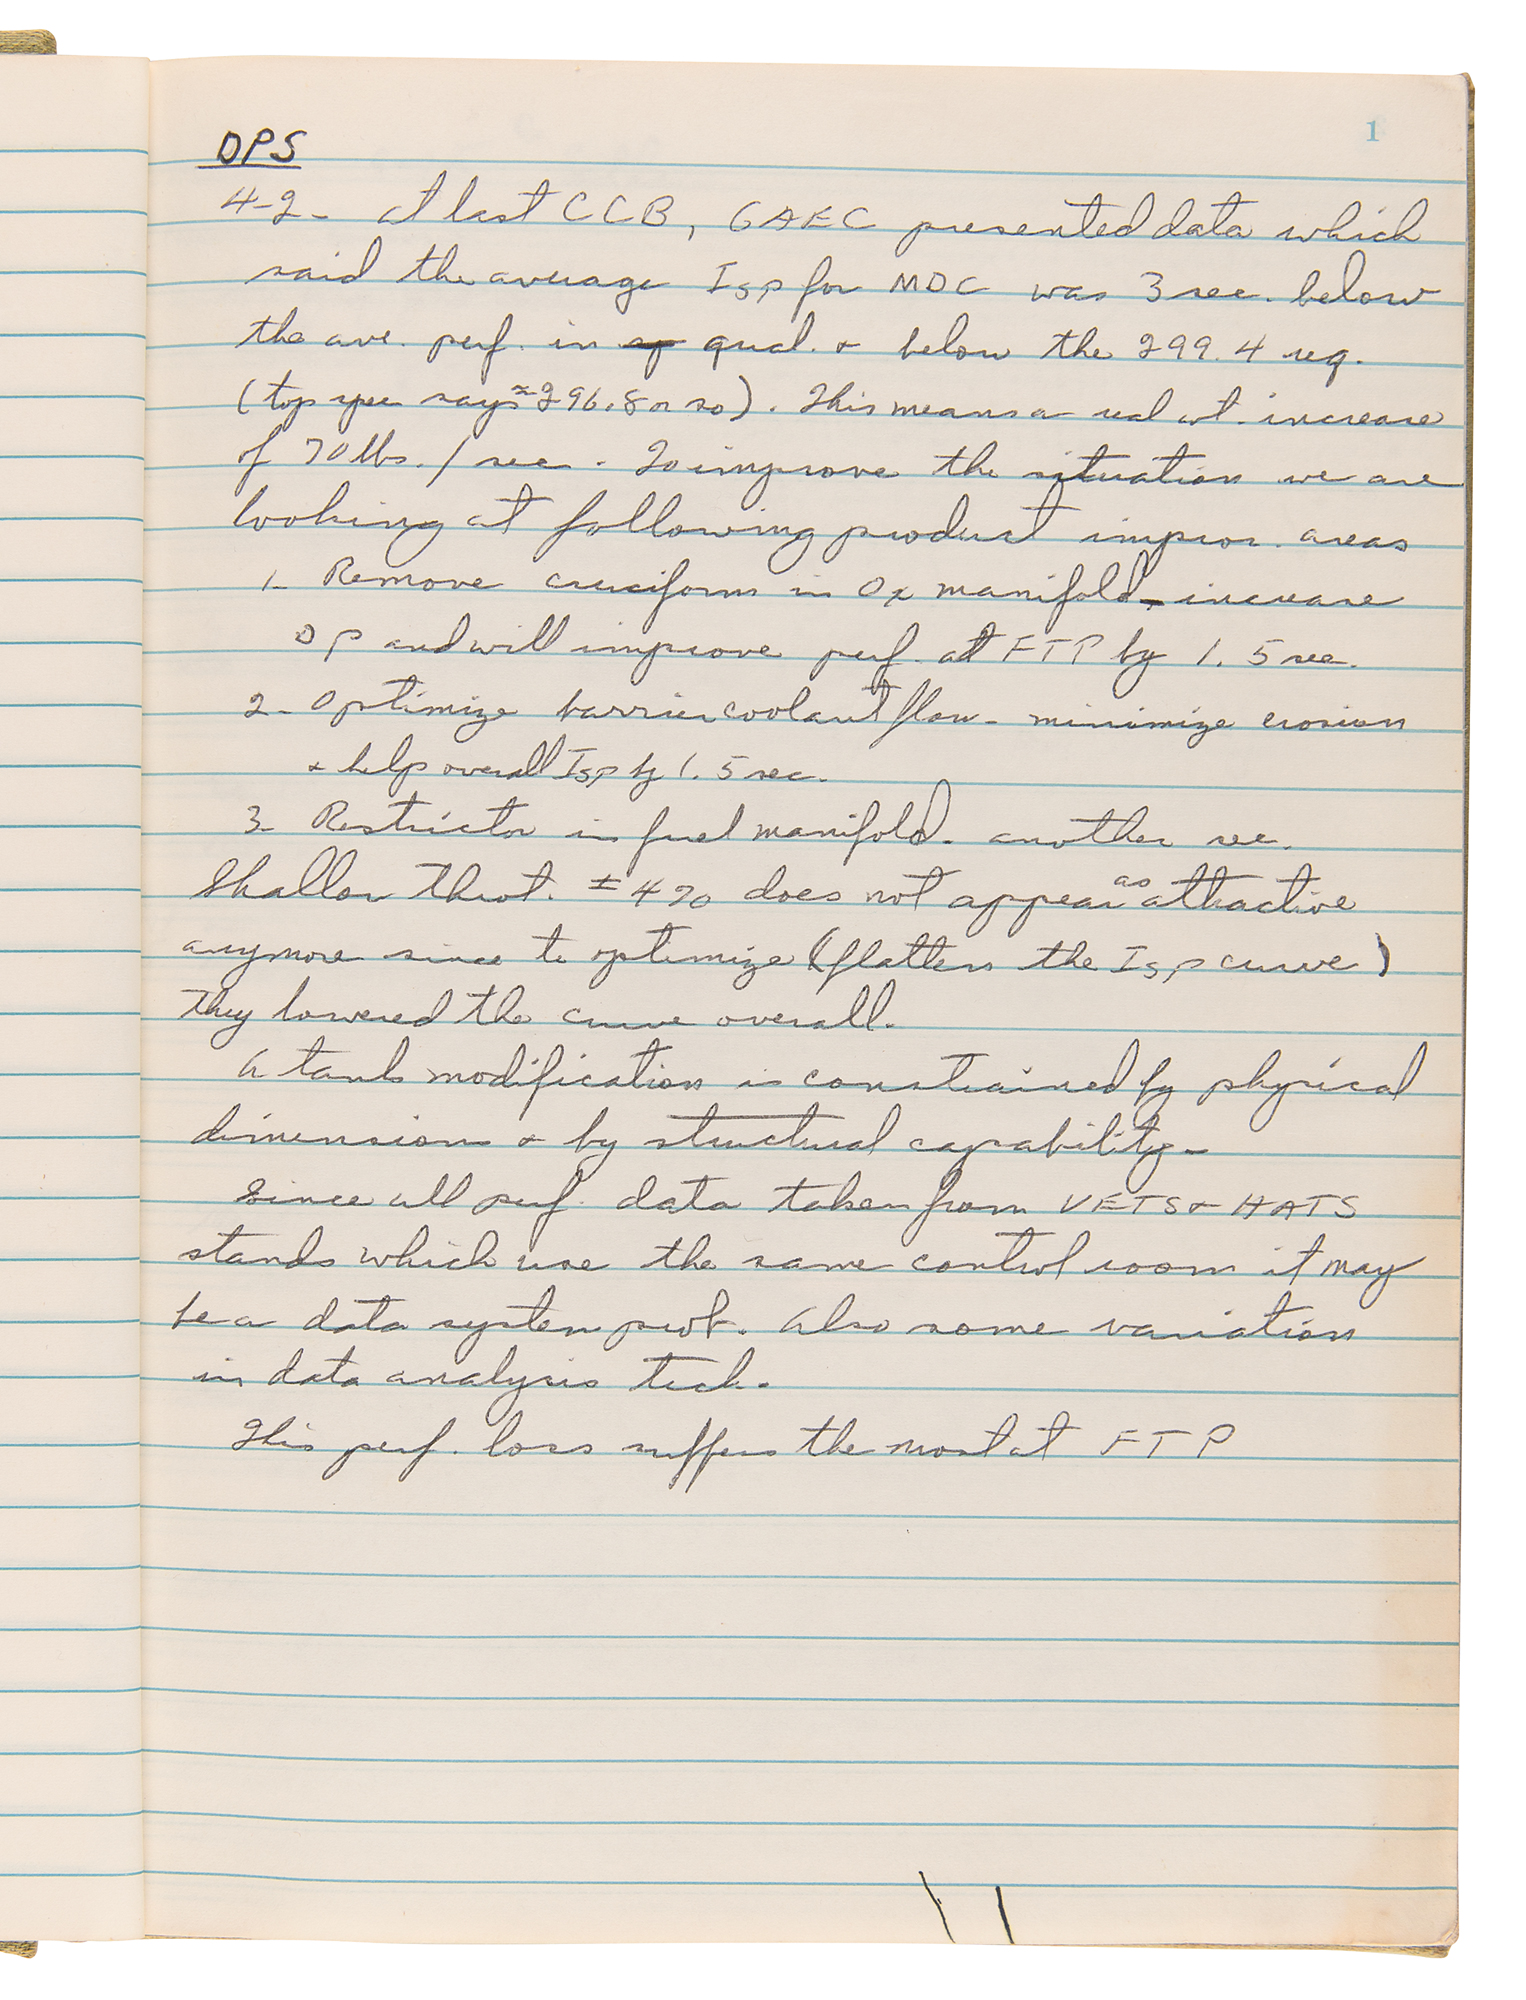 1
DPS
4-2- At last CCB, GAEC presented data which
said the average Isp for MDC was 3 sec. below
the ave. perf. in qual. + below the 299.4 req.
(top spec says ≈ 296.8 or so). This means a real wt. increase
of 70 lbs./sec. To improve the situation we are
looking at following product improv. areas
1- Remove cruciforms in Ox manifold - increase
DP and will improve perf. at FTP by 1.5 sec.
2- Optimize barrier coolant flow - minimize erosion
+ help overall Isp by 1.5 sec.
3- Restrictor in fuel manifold. another sec.
Shallow Throt. ± 4% does not appear as attractive
anymore since to optimize (flatten the Isp curve)
they lowered the curve overall.
A tank modification is constrained by physical
dimensions + by structural capability-
Since all perf. data taken from VETS + HATS
stands which use the same control room it may
be a data system prob. Also some variation
in data analysis tech.
This perf. loss suffers the most at FTP